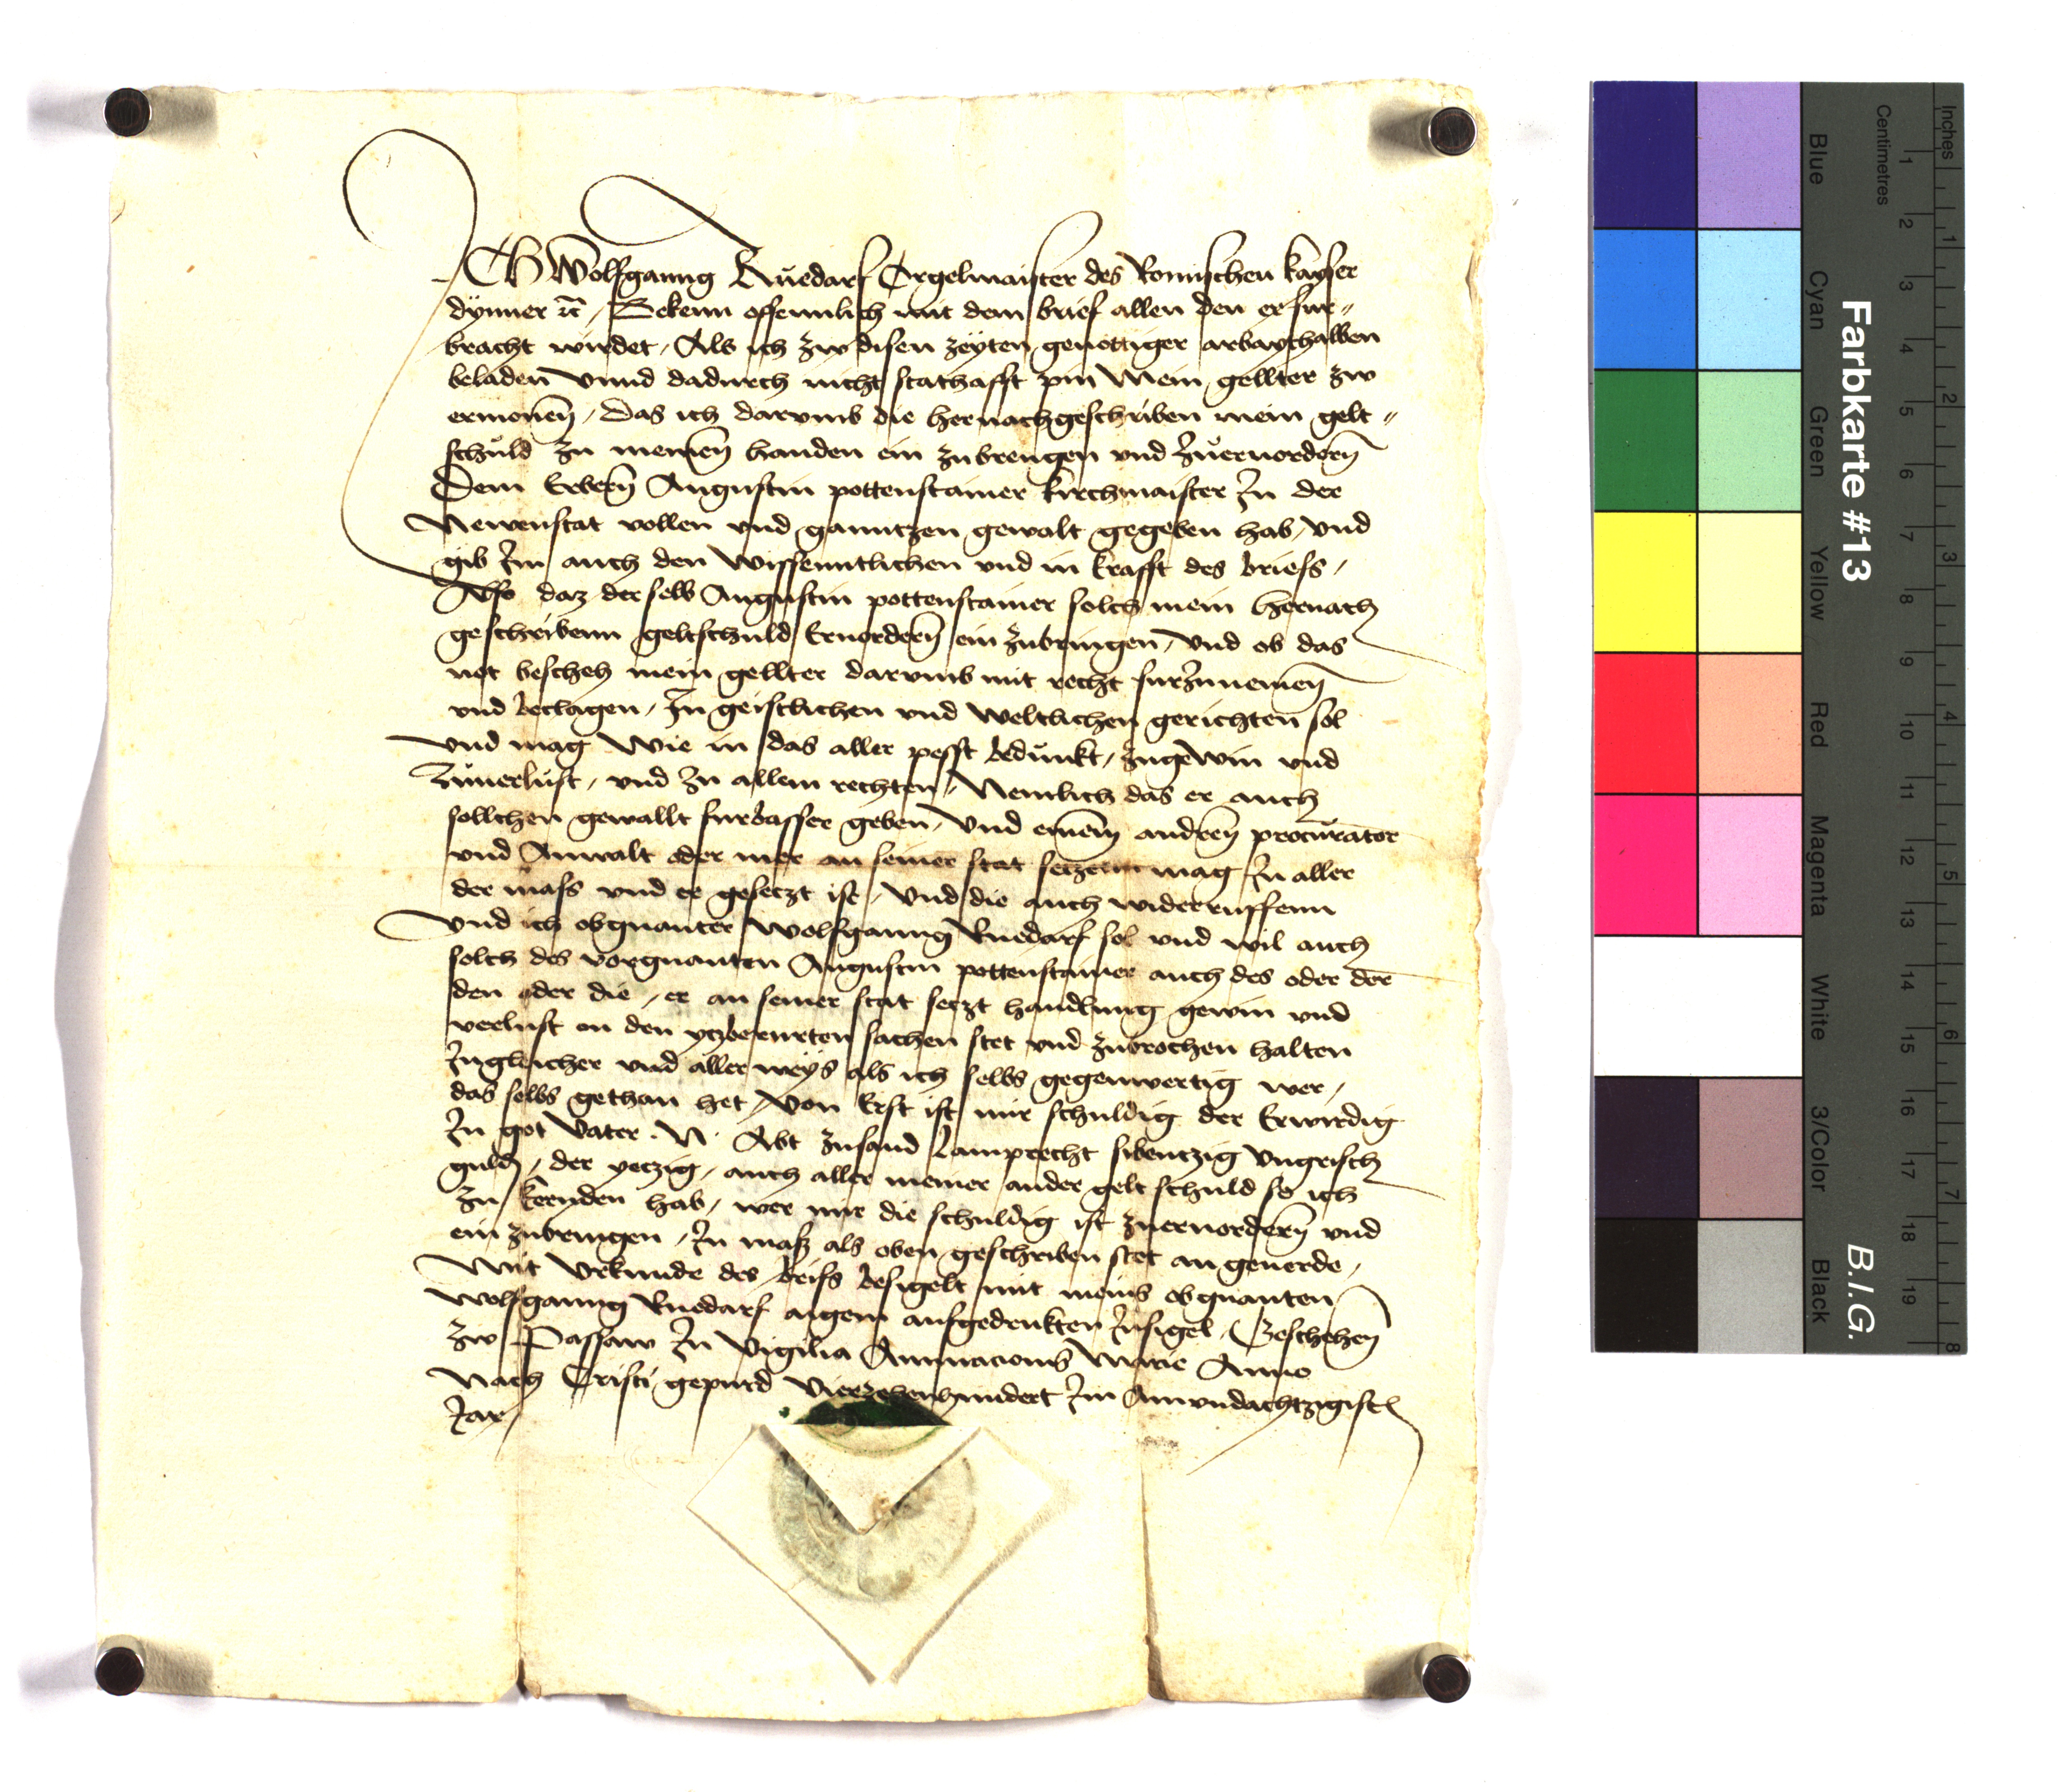 Ich Wolfganng Rŭedarf Orgelmaister des Romischen kayser
dÿnner ꝛc / Bekenn offennlich mit dem brief allen den er fur〃
bracht wirdet / Als ich zw disen zeyten genottiger arbaythalben
beladen Vnnd dadurch nicht stathafft pin Mein gellter zw
ermonen̄ / Das ich darvmb die hernachgeschriben mein gelt〃
schuld zu meinen̄ handen ein zubrengen vnd zuervordern̄
Dem Erbern̄ Augustin pottenstainer kirchmaister In der
Newenstat vollen vnd ganntzen gewalt gegeben hab / vnd
gib Im auch den Wissenntlichen vnd in krafft des briefs /
Also daz derselb Augustin pottenstainer solch mein hernach
geschribenn geltschuld Ervordern̄ ein zubringen / Vnd ob das
not bescheh mein gellter darvmb mit recht furzunemen̄
vnd beclagen / In geistlichen vnd Weltlichen gerichten sol
vnd mag Wie in das aller pesst bedunkt / zugewin vnd
zuuerlust / vnd zu allem rechten / Nemlich das er auch
sollchen gewallt furbasser geben / Vnd einem̄ andren̄ procurator
vnd Anwalt oder mer an seiner stat setzenn mag In aller
der mass vnd er gesetzt ist / Vnd die auch widerruffenn
Vnd ich obgnanter Wolfganng Ruedarf sol vnd wil auch
solch des vorgnanten Augustin pottenstainer auch des oder der
den oder die / er an seiner stat setzt handlung gewin vnd
verlust an den ytzberurten sachen stet vnd zubrochen halten
Ingleicher vnd aller weys als ich selbs gegenwertig wer /
das selbs gethan het / Von Erst ist mir schuldig der Erwirdig
In got Vater . N . Abt zusand Lamprecht sibentzig Vngrisch
guld / der yetzig / auch aller meiner ander gelt schuld so ich
zu kernden hab / wer mir die schuldig ist zuervordern̄ vnd
ein zubringen / In mass als oben geschriben stet an geuerde /
Mit Vrkunde des briefs besigelt mit meins obgnanten
Wolfganng Ruedarf aigem aufgedrukten Insigel / Beschehen̄
zw Passaw In Vigilia Annuncionis Marie Anno
Nach Cristi gepurd Vierzehenhundert Im Ainvndachtzigist
Jar /
Farbkarte #13
B.I.G.
Blue
Cyan
Green
Yellow
Red
Magenta
White
3/Color
Black
Centimetres
Inches
1
2
3
4
5
6
7
8
9
10
11
12
13
14
15
16
17
18
19
1
2
3
4
5
6
7
8